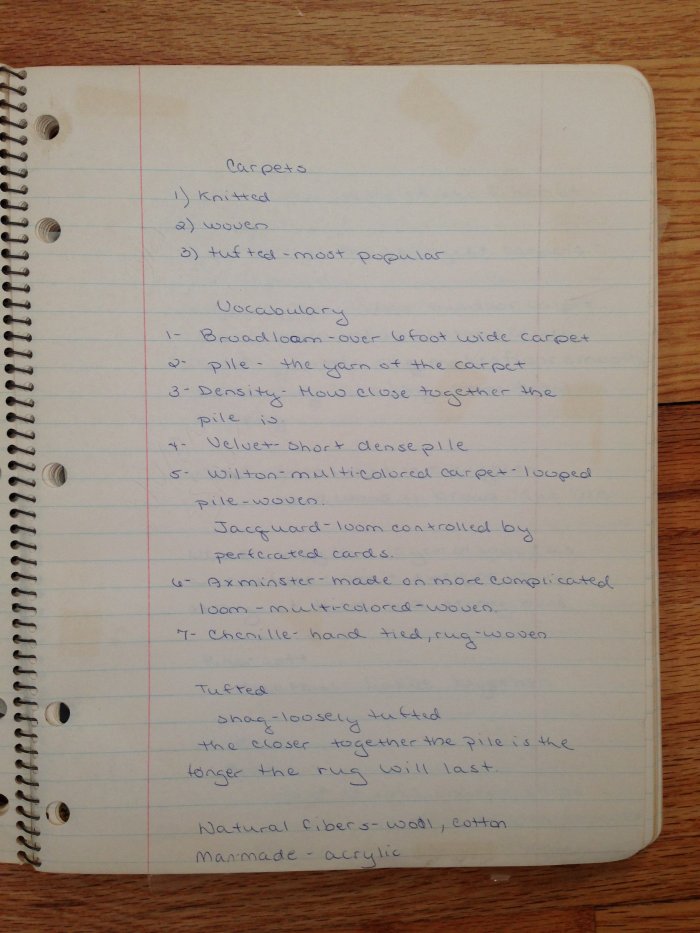 Carpets
1) Knitted
2) woven
3) tufted - most popular
Vocabulary
1- Broadloam - over 6 foot wide carpet
2- pile - the yarn of the carpet
3- Density - How close together the
pile is.
4- Velvet - short dense pile
5- Wilton - multi-colored carpet - looped
pile - woven.
Jacquard - loom controlled by
perforated cards.
6- Axminster - made on more complicated
loom - multi-colored - woven.
7- Chenille - hand tied, rug - woven
Tufted
shag - loosely tufted
the closer together the pile is the
longer the rug will last.
Natural fibers - wool, cotton
Manmade - acrylic